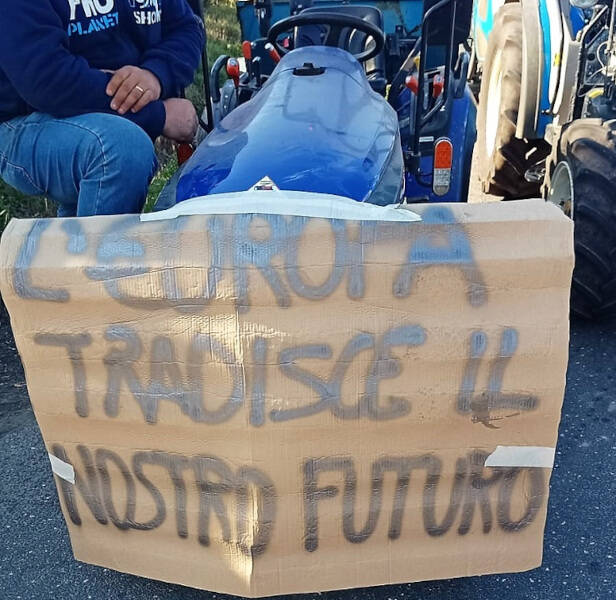 PRO
PLANET
SHOW
L'EUROPA
TRADISCE IL
NOSTRO FUTURO